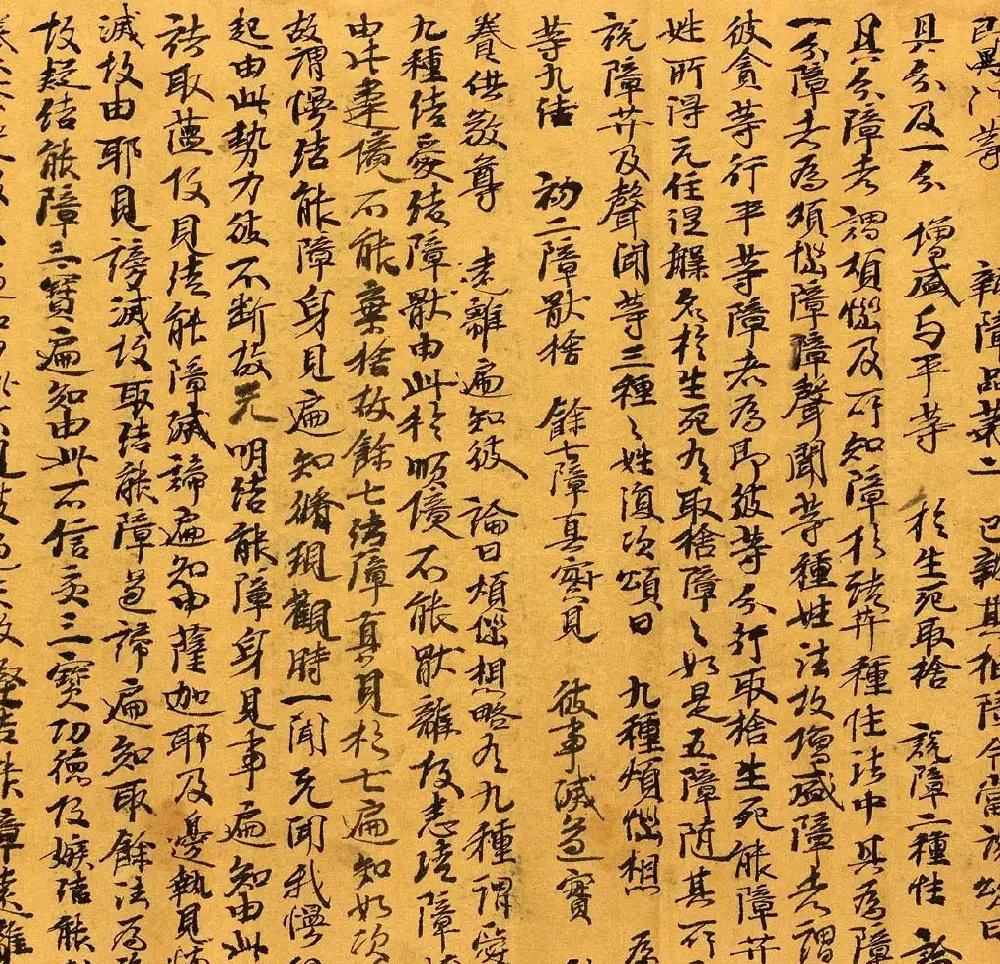 即異門等 辯障品第二 已辯其相障今當說頌曰
具分及一分 增盛与平等 於生死取捨 說障二種性 論
具分障者謂煩惱及所知障於諸𦬇種性法中具為障
一分障者為煩惱障障聲聞等種姓法故增盛障者謂
彼貪等行平等障者為即彼等分行取捨生死能障𦬇
姓所得无住涅槃名於生死有取捨障〻如是五障随其所
說障𦬇及聲聞等三種〻姓復次頌曰 九種煩惱想 為
等九結 初二障猒捨 餘七障真實見 彼事滅道寶
養供敬尊 遠離遍知彼 論曰煩惱想略有九種謂愛
九種結愛結障猒由此於順境不能猒離故恚結障
由此違境不能棄捨故餘七結障真見於七遍知如次
故謂慢結能障身見遍知脩現觀時一間无間我慢
起由此勢力彼不断故无明結能障身見事遍知由此
諸取蘊故見結能障滅諦遍知由薩迦耶及邊執見怖
滅故由耶見謗滅故取結能障道諦遍知取餘法為
故疑結能障三寶遍知由此不信受三寶功德故嫉結能